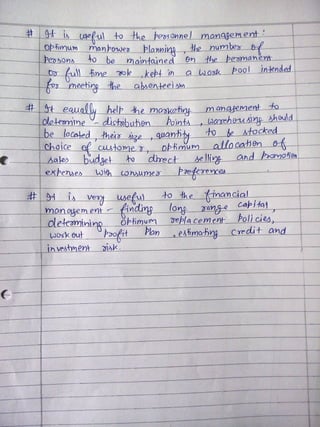 # It is useful to the personnel management:
optimum manpower planning, the number of
persons to be maintained on the permanent
or full time role, kept in a work pool intended
for meeting the absenteeism
# It equally help the marketing management to
determine - distribution points, warehousing should
be located, their size, quantity to be stocked
choice of customer, optimum allocation of
sales budget to direct selling and promotion
expenses with consumer preferences
# It is very useful to the financial
management - finding long range capital,
determining optimum replacement policies,
workout profit plan, estimating credit and
investment risk.